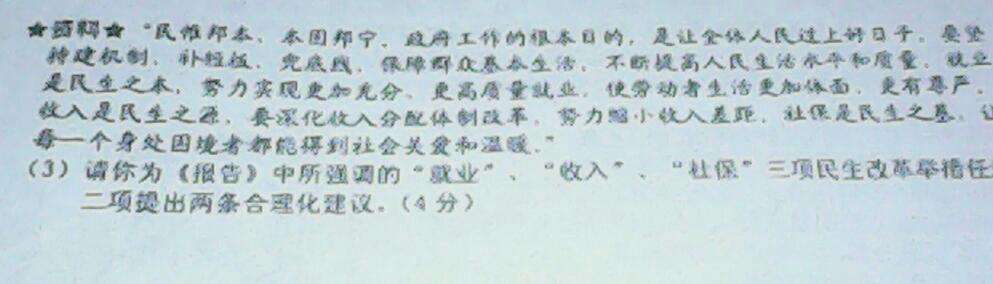 ★资料★ “民惟邦本，本固邦宁。政府工作的根本目的，是让全体人民过上好日子。要坚
持建机制、补短板、兜底线，保障群众基本生活，不断提高人民生活水平和质量。就业
是民生之本，努力实现更加充分、更高质量就业，使劳动者生活更加体面、更有尊严。
收入是民生之源，要深化收入分配体制改革，努力缩小收入差距。社保是民生之基，让
每一个身处困境者都能得到社会关爱和温暖。”
(3) 请你为《报告》中所强调的“就业”、“收入”、“社保”三项民生改革举措任选
二项提出两条合理化建议。(4分)